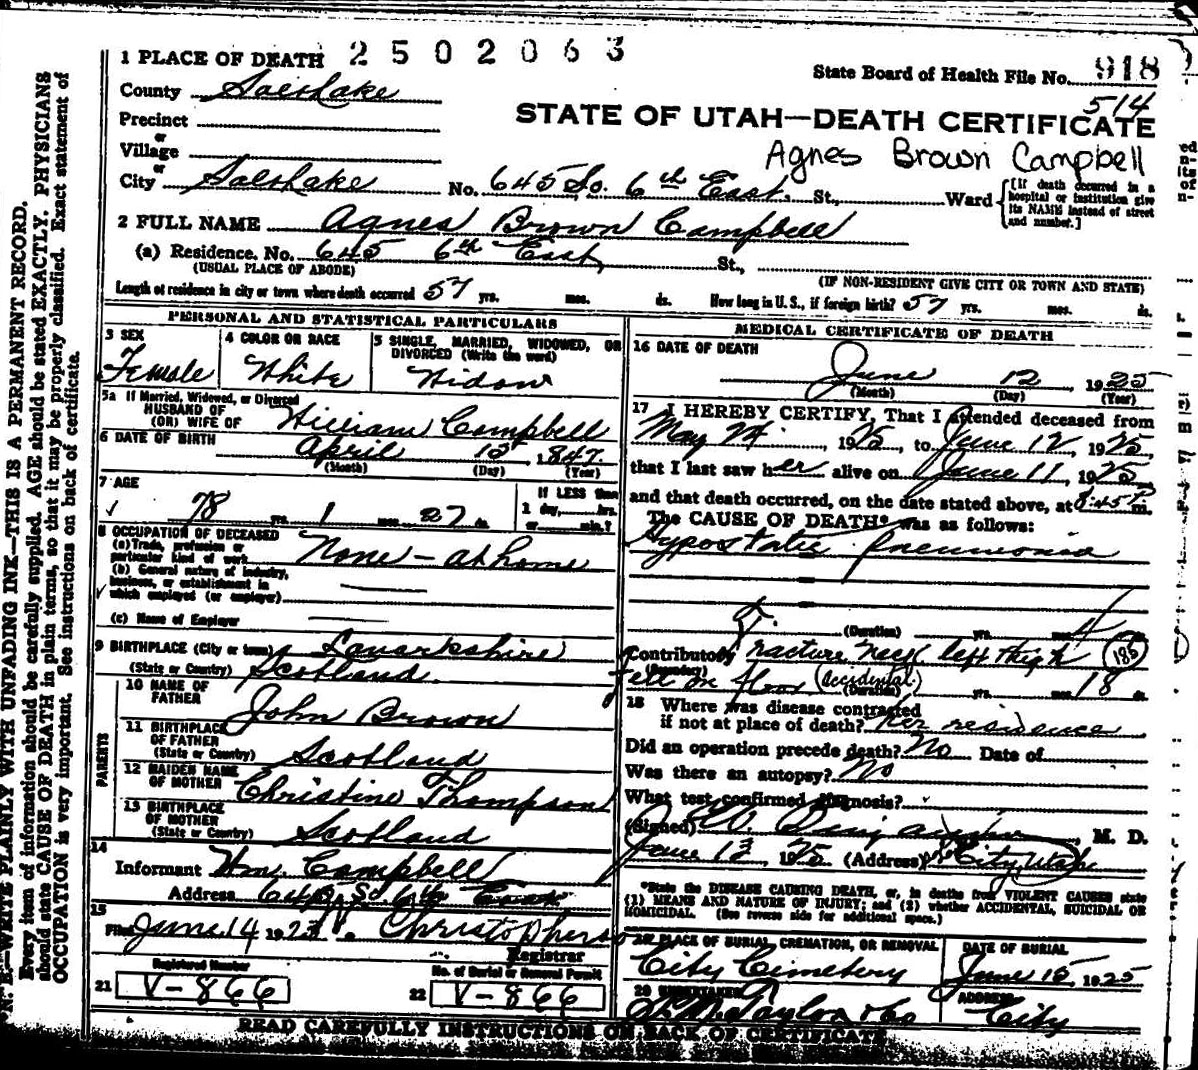 N. B.—WRITE PLAINLY WITH UNFADING INK—THIS IS A PERMANENT RECORD.
Every item of information should be carefully supplied. AGE should be stated EXACTLY. PHYSICIANS
should state CAUSE OF DEATH in plain terms, so that it may be properly classified. Exact statement of
OCCUPATION is very important. See instructions on back of certificate.
1 PLACE OF DEATH 2502063
State Board of Health File No. 918
514
County Salt Lake
STATE OF UTAH—DEATH CERTIFICATE
Precinct
or
Village
Agnes Brown Campbell
or
City Salt Lake No. 645 So. 6th East, St., Ward
[If death occurred in a
hospital or institution give
its NAME instead of street
and number.]
2 FULL NAME Agnes Brown Campbell
(a) Residence. No. 645 6th East, St.,
(USUAL PLACE OF ABODE)
(IF NON-RESIDENT GIVE CITY OR TOWN AND STATE)
Length of residence in city or town where death occurred 57 yrs. mos. ds. How long in U. S., if foreign birth? 57 yrs. mos. ds.
PERSONAL AND STATISTICAL PARTICULARS
3 SEX
Female
4 COLOR OR RACE
White
5 SINGLE, MARRIED, WIDOWED, OR
DIVORCED (Write the word)
Widow
5a If Married, Widowed, or Divorced
HUSBAND OF
(OR) WIFE OF William Campbell
6 DATE OF BIRTH April 15, 1847
(Month) (Day) (Year)
7 AGE
78 yrs. 1 mos. 27 ds.
If LESS than
1 day, hrs.
or min.?
8 OCCUPATION OF DECEASED
(a) Trade, profession or
particular kind of work None - at home
(b) General nature of industry,
business, or establishment in
which employed (or employer)
(c) Name of Employer
9 BIRTHPLACE (City or town) Lanarkshire
(State or Country) Scotland
PARENTS
10 NAME OF
FATHER John Brown
11 BIRTHPLACE
OF FATHER
(State or Country) Scotland
12 MAIDEN NAME
OF MOTHER Christine Thompson
13 BIRTHPLACE
OF MOTHER
(State or Country) Scotland
14
Informant Wm. Campbell
Address So. 6th East
15
Filed June 14 192 Christopherso
Registrar
Registered Number
21 V-866
No. of Burial or Removal Permit
22 V-866
MEDICAL CERTIFICATE OF DEATH
16 DATE OF DEATH
June 12, 1925
(Month) (Day) (Year)
17 I HEREBY CERTIFY, That I attended deceased from
May 24, 1925, to June 12, 1925,
that I last saw her alive on June 11, 1925,
and that death occurred, on the date stated above, at 8:45 P. m.
The CAUSE OF DEATH* was as follows:
Hypostatic pneumonia
(Duration) yrs. mos. 4
Contributory Fracture neck left thigh (185)
(Secondary)
fell on floor (accidental)
(Duration) yrs. mos. 18 ds.
18 Where was disease contracted
if not at place of death? her residence
Did an operation precede death? No Date of
Was there an autopsy? No
What test confirmed diagnosis?
(Signed) M. D.
June 13, 1925 (Address) City, Utah
*State the DISEASE CAUSING DEATH, or, in deaths from VIOLENT CAUSES state
(1) MEANS AND NATURE OF INJURY; and (2) whether ACCIDENTAL, SUICIDAL OR
HOMICIDAL. (See reverse side for additional space.)
PLACE OF BURIAL, CREMATION, OR REMOVAL
City Cemetery
DATE OF BURIAL
June 15, 1925
20 UNDERTAKER
Taylor & Co
ADDRESS
City
READ CAREFULLY INSTRUCTIONS ON BACK OF CERTIFICATE